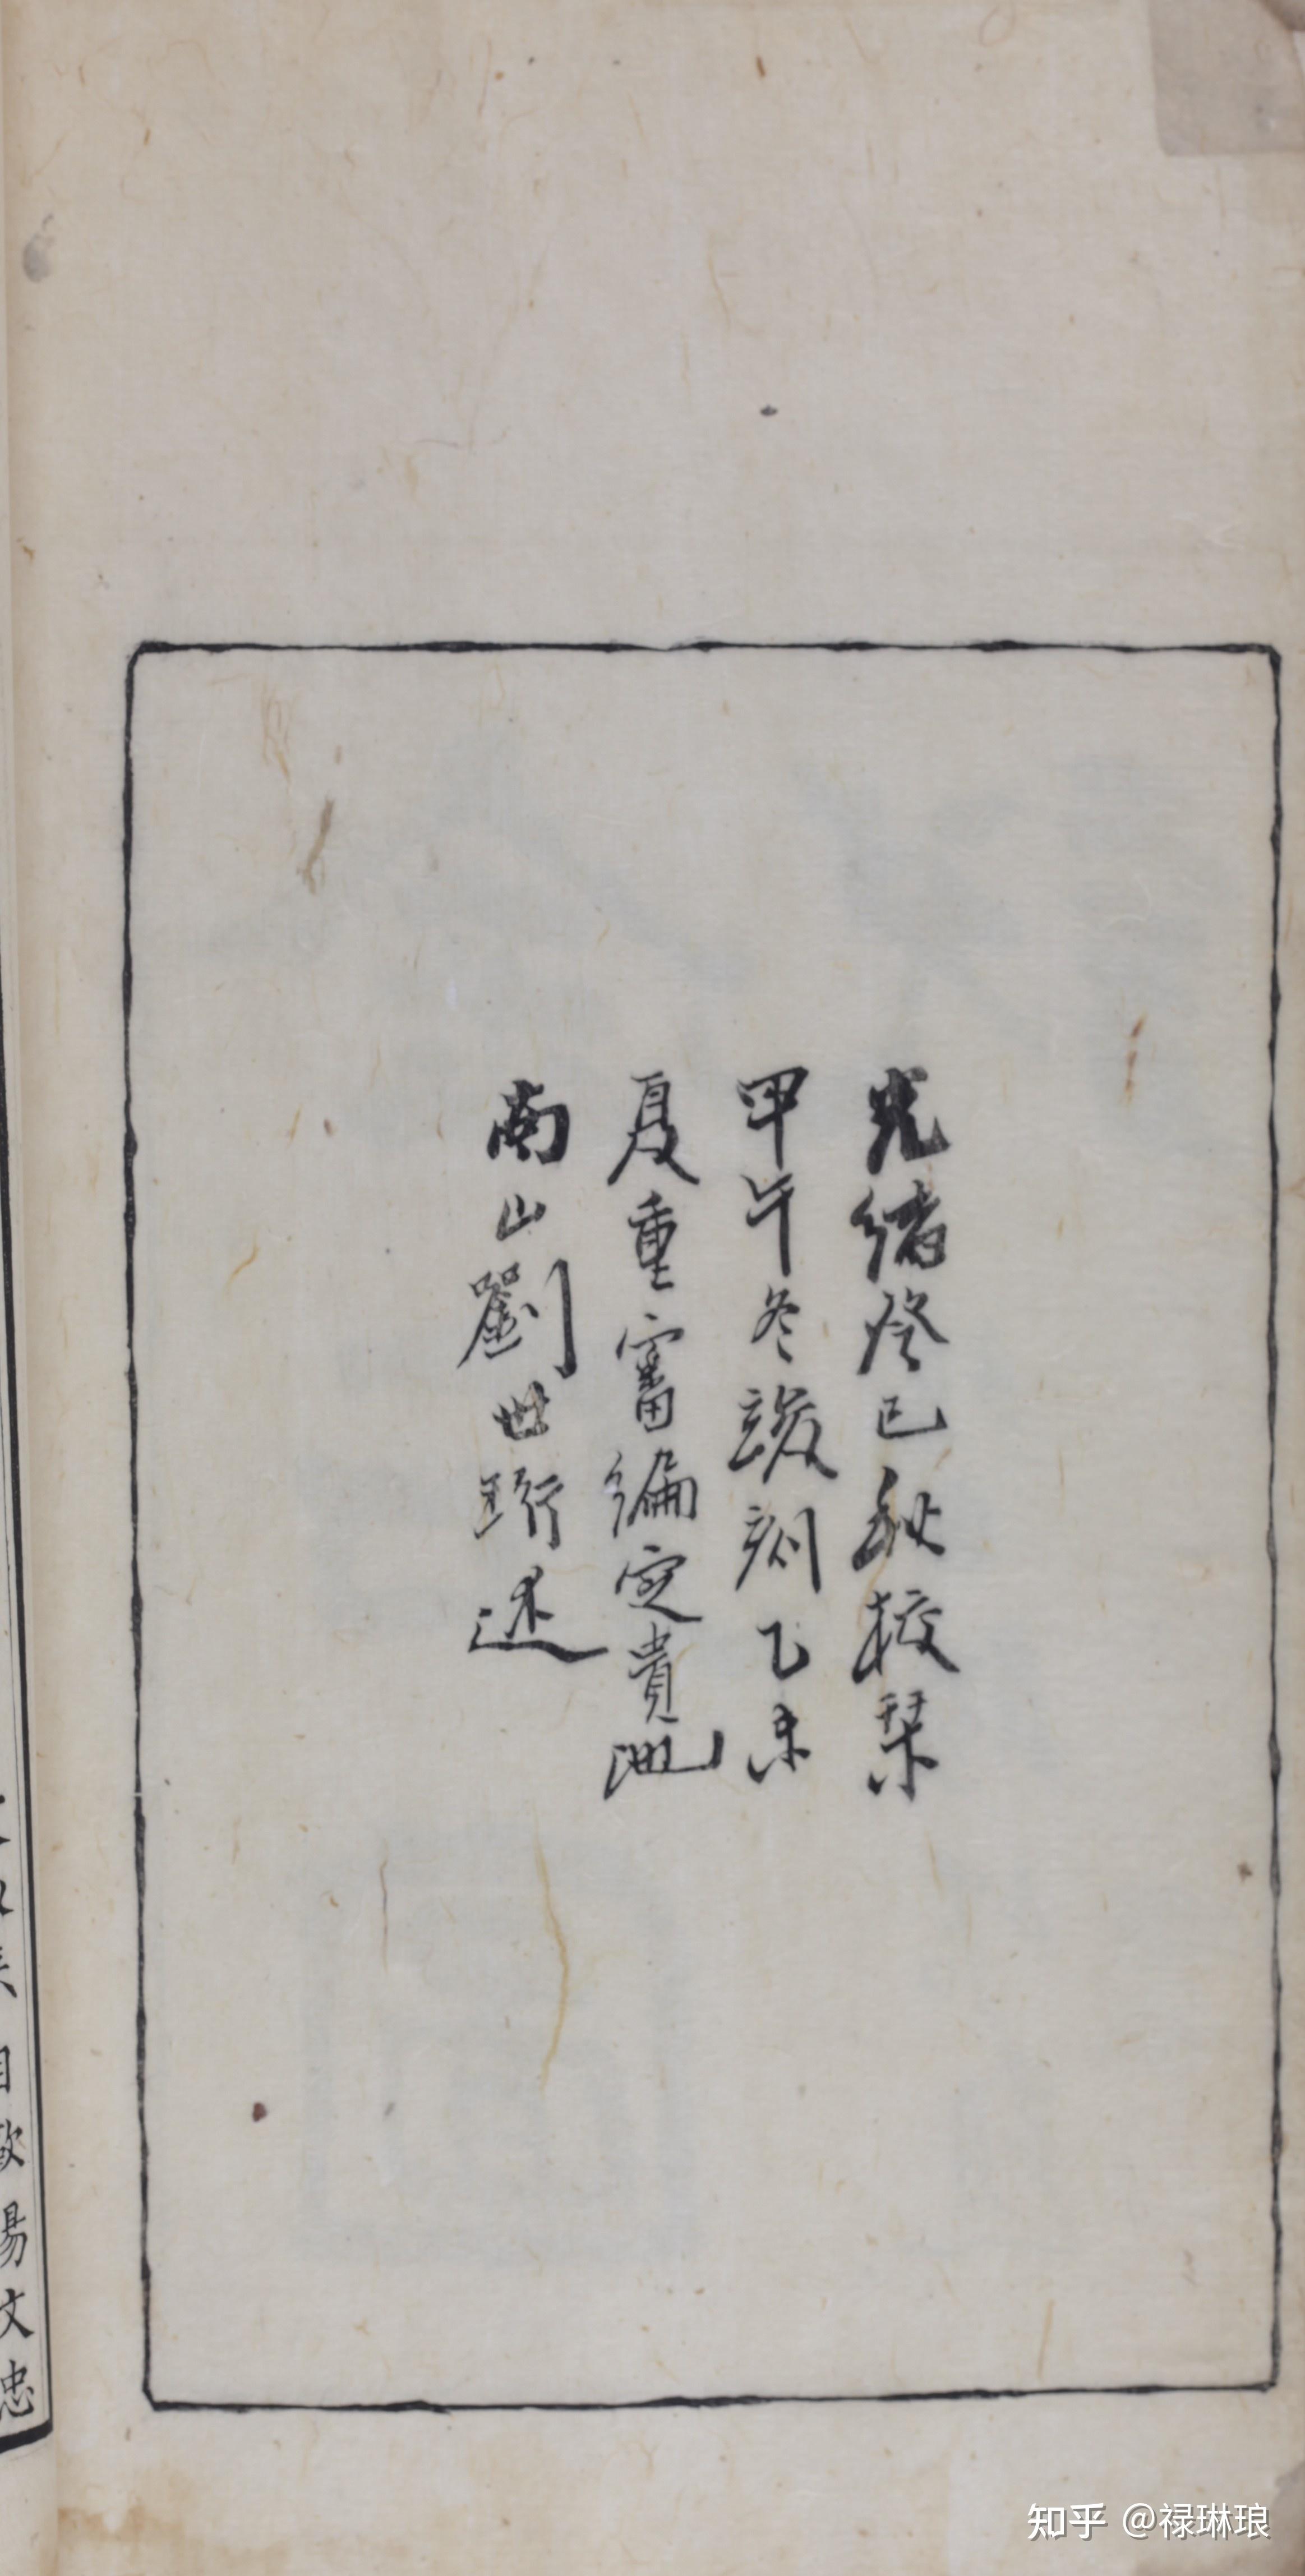 光緒癸巳秋校栞
甲午冬竣刻乙未
夏重審編定貴池
南山劉世珩述
目歐陽文忠
知乎 @禄琳琅